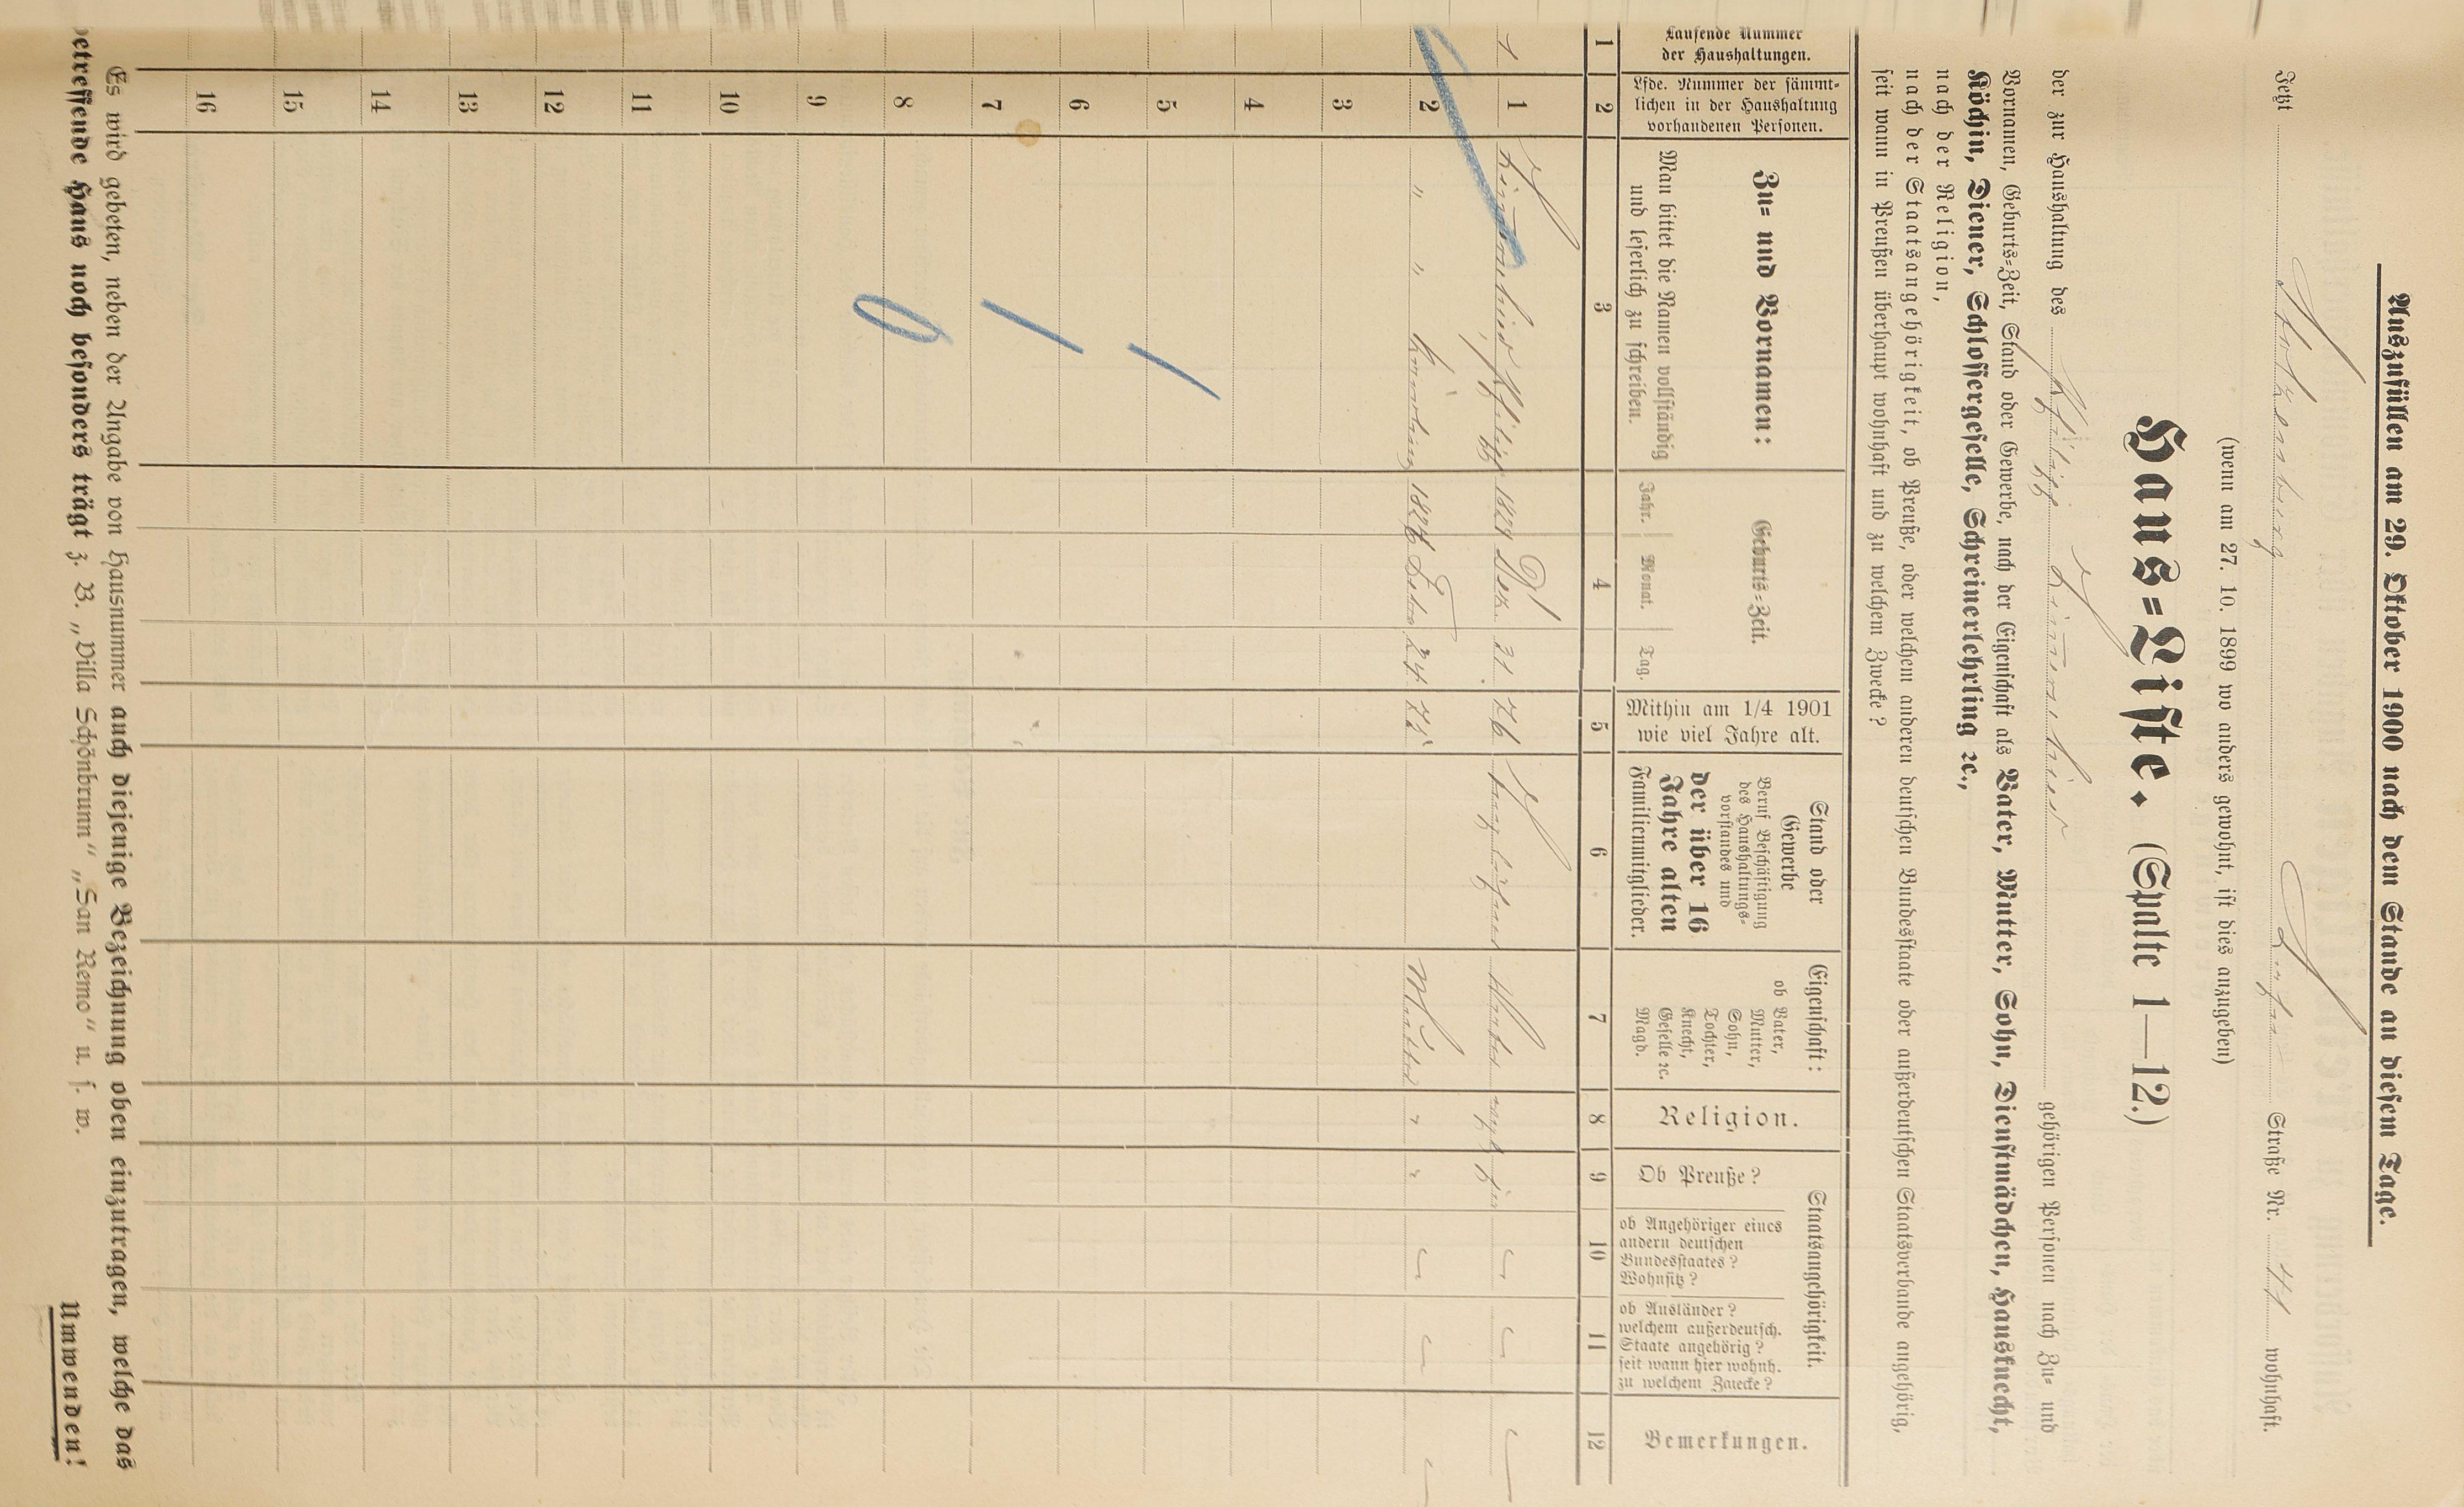 Auszufüllen am 29. Oktober 1900 nach dem Stande an diesem Tage.
Jetzt Straße Nr. wohnhaft.
(wenn am 27. 10. 1899 wo anders gewohnt, ist dies anzugeben)
Haus=Liste. (Spalte 1—12.)
der zur Haushaltung des Philipp gehörigen Personen nach Zu= und
Vornamen, Geburts=Zeit, Stand oder Gewerbe, nach der Eigenschaft als Vater, Mutter, Sohn, Dienstmädchen, Hausknecht,
Köchin, Diener, Schlossergeselle, Schreinerlehrling ꝛc.,
nach der Religion,
nach der Staatsangehörigkeit, ob Preuße, oder welchem anderen deutschen Bundesstaate oder außerdeutschen Staatsverbande angehörig,
seit wann in Preußen überhaupt wohnhaft und zu welchem Zwecke?
Laufende Nummer
der Haushaltungen.
Lfde. Nummer der sämmt=
lichen in der Haushaltung
vorhandenen Personen.
Zu= und Vornamen:
Man bittet die Namen vollständig
und leserlich zu schreiben.
Geburts=Zeit.
Jahr. Monat. Tag.
Mithin am 1/4 1901
wie viel Jahre alt.
Stand oder
Gewerbe
Beruf Beschäftigung
des Haushaltungs=
vorstandes und
der über 16
Jahre alten
Familienmitglieder.
Eigenschaft:
ob Vater,
Mutter,
Sohn,
Tochter,
Knecht,
Geselle ꝛc.
Magd.
Religion.
Staatsangehörigkeit.
Ob Preuße?
ob Angehöriger eines
andern deutschen
Bundesstaates?
Wohnsitz?
ob Ausländer?
welchem außerdeutsch.
Staate angehörig?
seit wann hier wohnh.
zu welchem Zwecke?
Bemerkungen.
1 2 3 4 5 6 7 8 9 10 11 12
1 1 Philipp Dez. 31. 76
2 " " 24.
3
4
5
6
7
8
9
10
11
12
13
14
15
16
Es wird gebeten, neben der Angabe von Hausnummer auch diejenige Bezeichnung oben einzutragen, welche das
betreffende Haus noch besonders trägt z. B. „Villa Schönbrunn“ „San Remo“ u. s. w.
Umwenden!